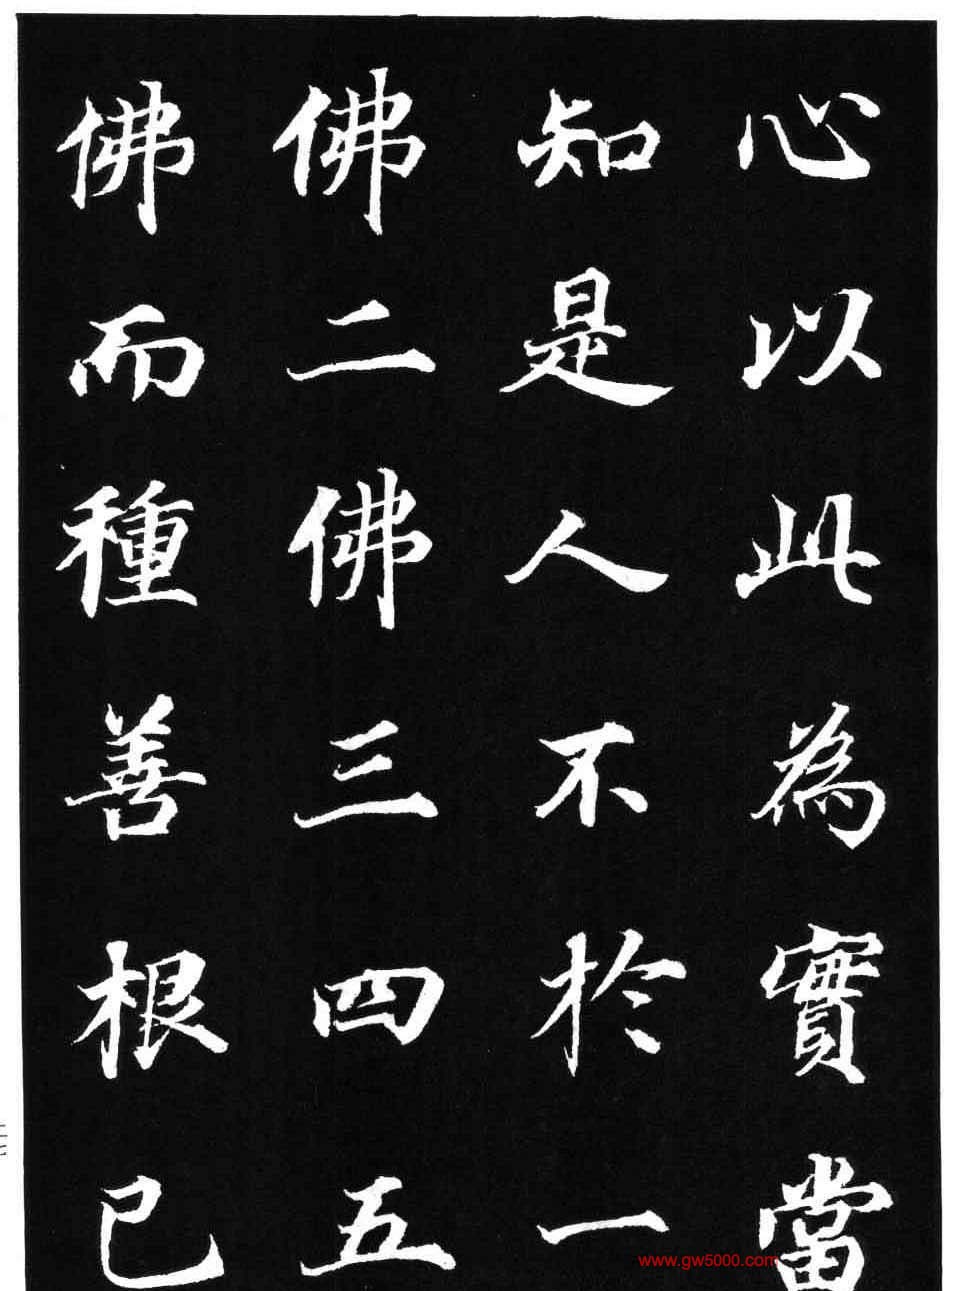 心以此為實當
知是人不於一
佛二佛三四五
佛而種善根已
www.gw5000.com